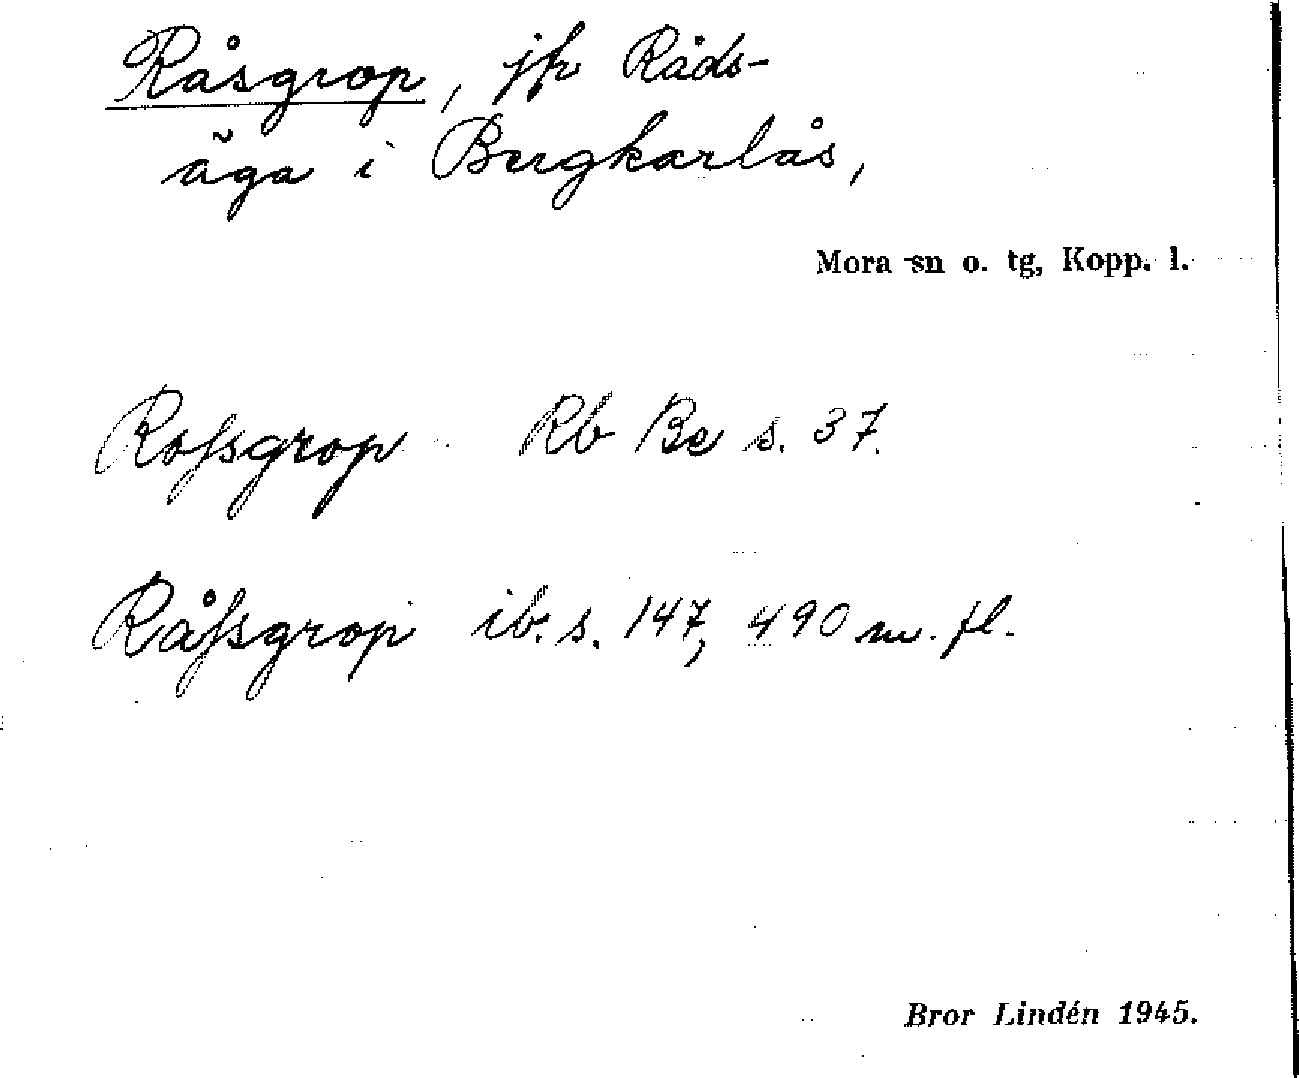 Råsgrop, jfr Råds-
äga i Bergkarlås,
Mora sn o. tg, Kopp. l.
Rofsgrop Rb Be s. 37.
Råfsgrop ib. s. 147, 490 m. fl.
Bror Lindén 1945.